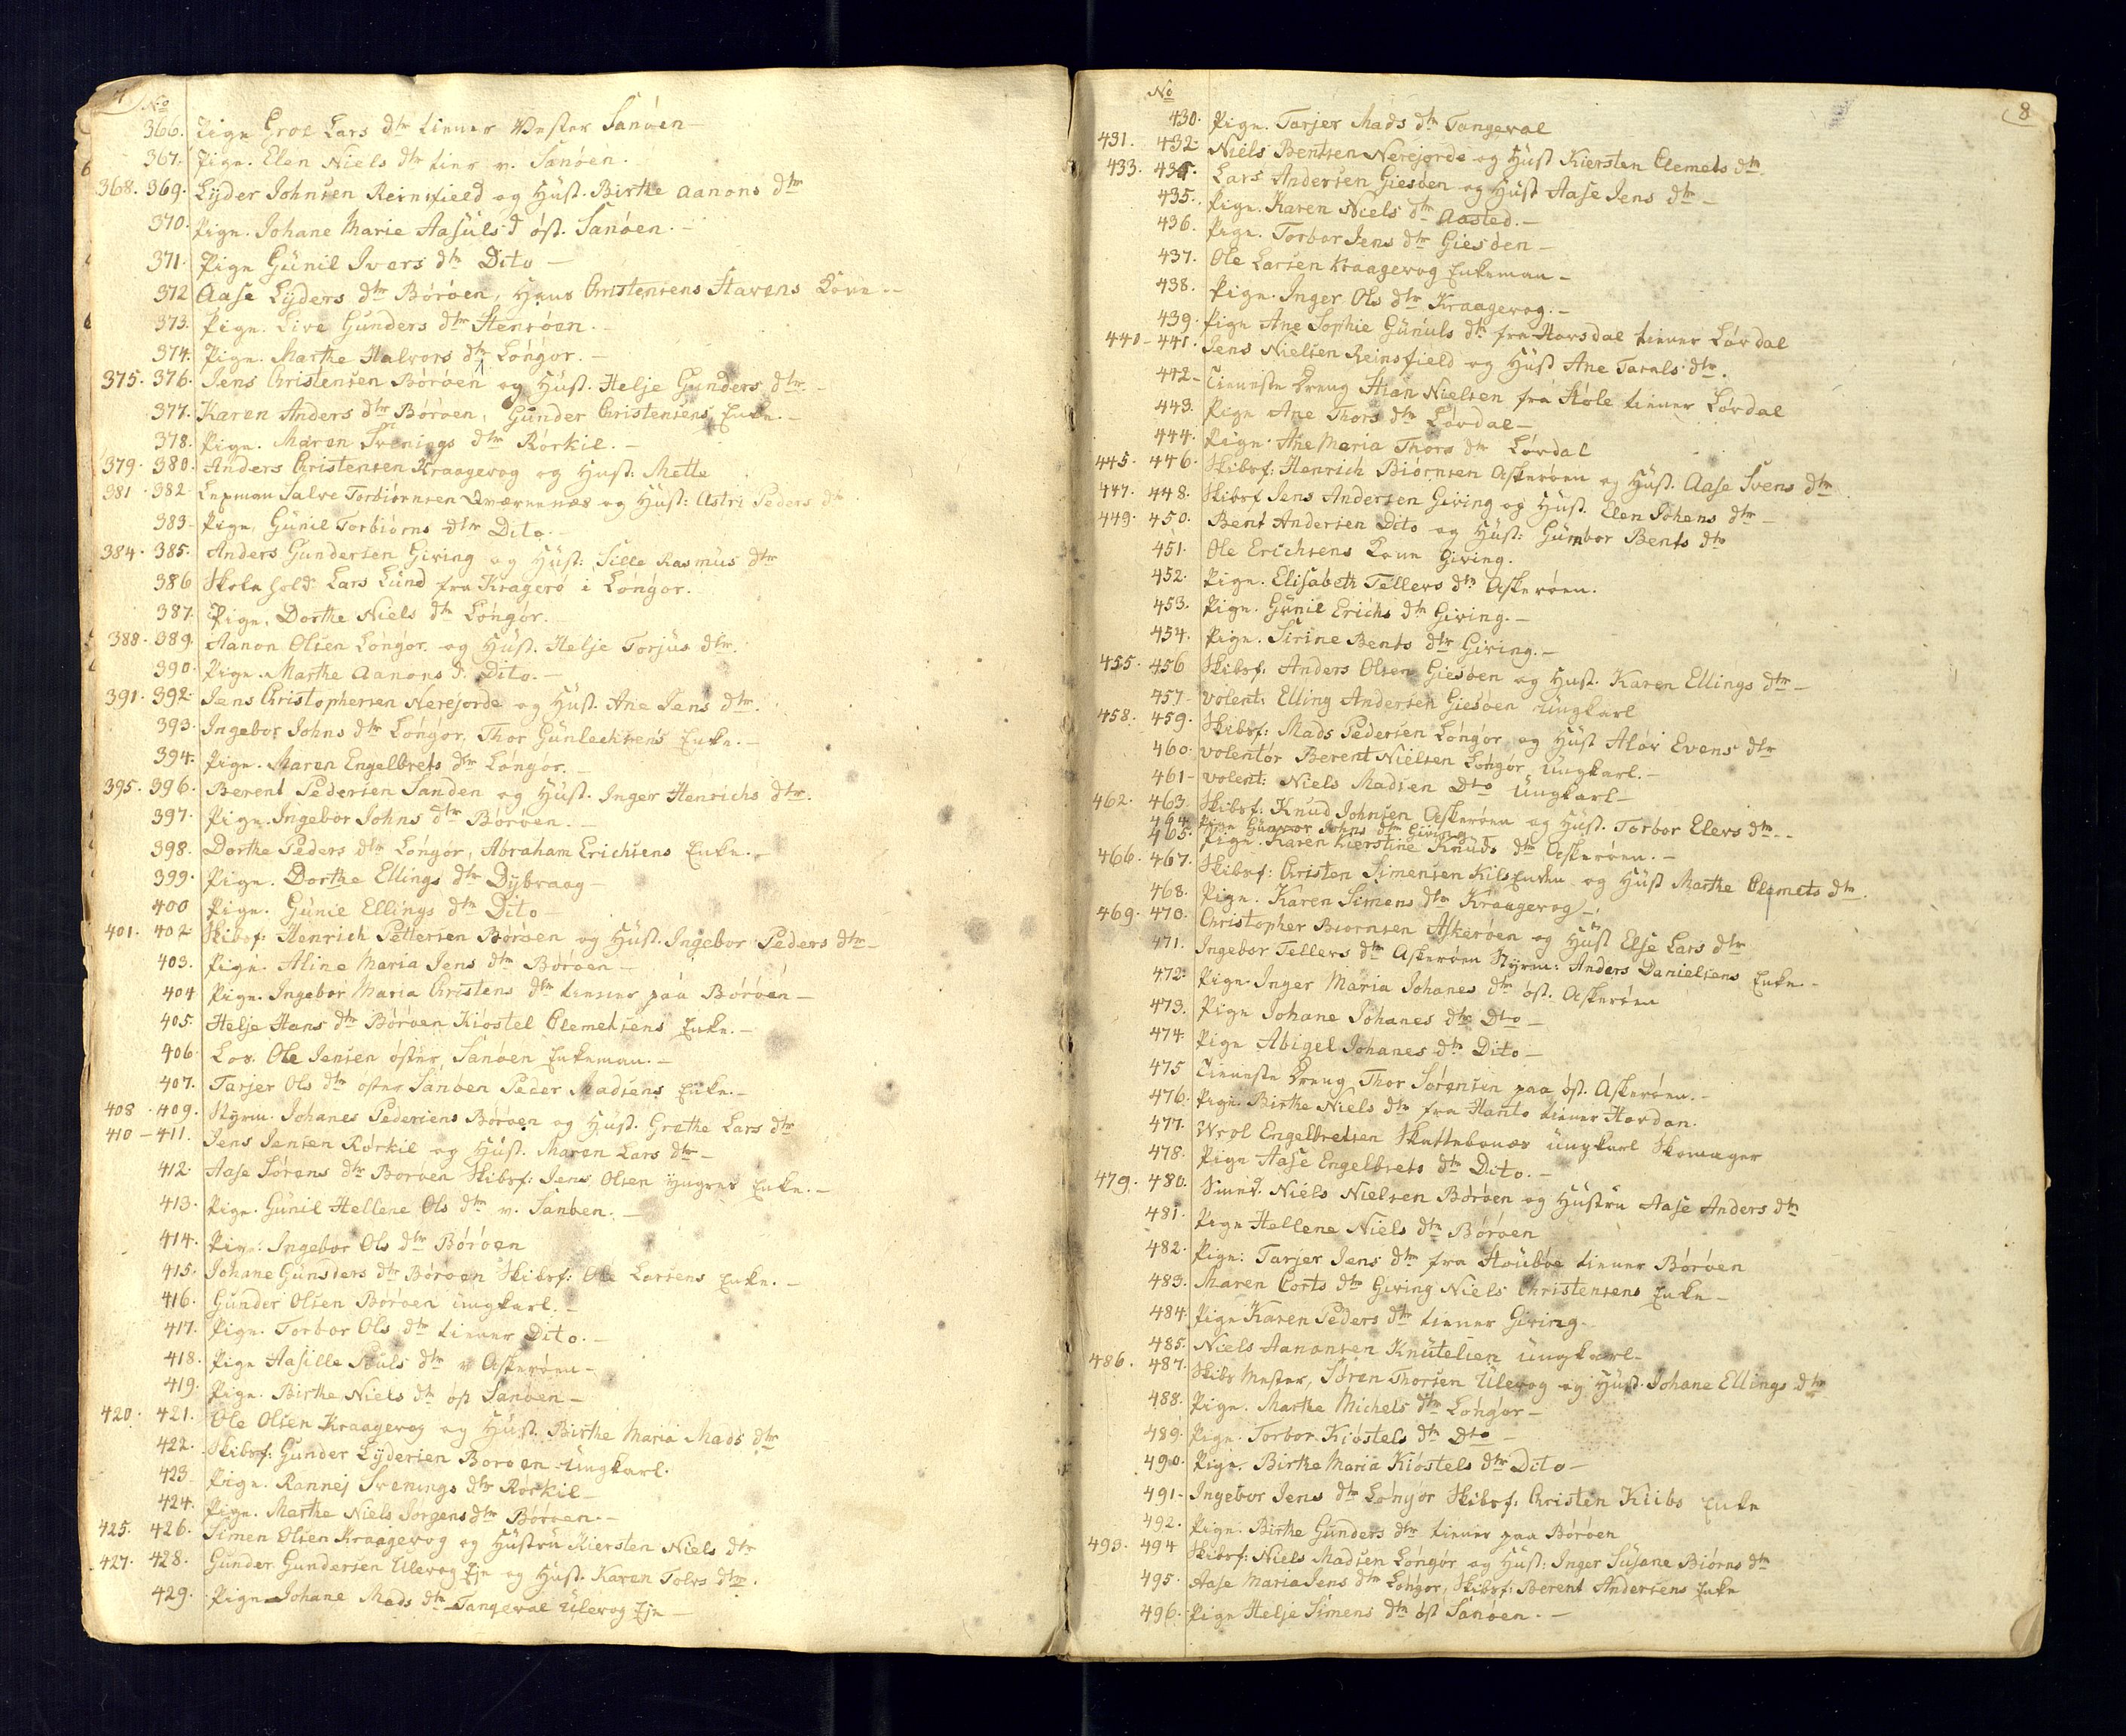 7
No
366. Pign Groe Lars dtr tiener Vester Sanöen
367. Pign. Elen Niels dtr tien v. Sanöen.
368. 369. Lyder Johnsen Reinsfield og Hust. Birthe Aanons dtr
370. Pign. Johane Marie Aasuls d öst. Sanöen. -
371. Pign Gunil Ivers dtr Dito -
372 Aase Lyders dtr Böröen, Hans Christensens Havens Kone -
373. Pign. Live Gunders dtr Stensöen. -
374. Pign. Marthe Halvors dtr Longör. -
375. 376. Jens Christensen Böröen og Hust. Helje Gunders dtr. -
377. Karen Anders dtr Böröen, Gunder Christensens Enke. -
378. Pign. Maren Svenings dtr Rörkil. -
379. 380. Anders Christensen Kraagevog og Hust: Mette
381. 382. Lexman Salve Torbiörnsen Qværnenæs og Hust: Astri Peders dtr
383. Pign, Gunil Torbiörns dtr Dito. -
384. 385. Anders Gundersen Giving og Hust: Sille Rasmus dtr
386 Skoleholdr Lars Lund fra Kragerö i Longör.
387. Pign. Dorthe Niels dtr Longör.
388. 389. Aanon Olsen Longör. og Hust. Helje Torjus dtr.
390. Pign. Marthe Aanons d. Dito. -
391. 392. Jens Christophersen Nerejorde og Hust. Ane Jens dtr.
393. Ingebor Johns dtr Longör, Thor Gunlechsens Enke. -
394. Pign. Maren Engelbrets dtr Longör. -
395. 396. Berent Pedersen Sanden og Hust. Inger Henrichs dtr.
397. Pign. Ingebor Johns dtr Böröen. -
398. Dorthe Peders dtr Longör, Abraham Erichsens Enke. -
399. Pign. Dorthe Ellings dtr Dybvaag -
400 Pign. Gunil Ellings dtr Dito -
401. 402. Skibsf: Henrich Pettersen Böröen og Hust. Ingebor Peders dtr -
403. Pign. Aline Maria Jens dtr Böröen -
404 Pign. Ingebor Maria Christens dtr tiener paa Böröen -
405. Helje Hans dtr Böröen Kiöstel Clemetsens Enke. -
406. Los. Ole Jensen öster Sanöen Enkeman. -
407. Tarjer Ols dtr öster Sanöen Peder Madsens Enke. -
408. 409. Styrm. Johanes Pedersens Böröen og Hust. Grethe Lars dtr
410 - 411. Jens Jensen Rörkil og Hust. Maren Lars dtr -
412. Aase Sörens dtr Böröen Skibsf: Jens Olsen yngres Enke. -
413. Pign. Gunil Hellene Ols dtr v. Sanöen. -
414. Pign: Ingebor Ols dtr Böröen
415. Johane Gunsders dtr Böröen Skibsf: Ole Larsens Enke. -
416. Gunder Olsen Böröen ungkarl. -
417. Pign. Torbor Ols dtr tiener Dito. -
418. Pign Aasille Pouls dtr v Askeröen -
419. Pign. Birthe Niels dt öst Sanöen -
420. 421. Ole Olsen Kraagevog og Hust. Birthe Maria Mads dtr
422. Skibsf: Gunder Lydersen Boroen Ungkarl.
423. Pign. Rannej Svenings dtr Rörkil -
424. Pign. Marthe Niels Jörgens dtr Böröen. -
425. 426. Simen Olsen Kraagevog og Hustru Kiersten Niels dtr
427. 428. Gunder Gundersen Ulevog Eje og Hust. Karen Tolvs dtr.
429. Pign Johane Mads dtr Tangeval Ulevog Eje -
8
No
430. Pign. Tarjer Mads dtr Tangeval
431. 432. Niels Bentsen Nerejorde og Hust Kiersten Clemets dtr.
433. 434. Lars Andersen Giesöen og Hust Aase Jens dtr -
435. Pign. Karen Niels dtr Aasted. -
436. Pign. Torbor Jens dtr Giesöen -
437. Ole Larsen Kraagevog Enkeman -
438. Pign. Inger Ols dtr Kraagevog. -
439. Pign Ane Sophie Gunuls dtr fra Horsdal tiener Lövdal
440 - 441. Jens Nielsen Reinsfield og Hust Ane Taralsdtr.
442 - Tieneste Dreng Stian Nielsen fra Hole tiener Lövdal
443. Pign Ane Thors dtr Lövdal -
444. Pign. Ane Maria Thors dtr Lövdal
445. 446. Skibsf: Henrich Biörnsen Askeröen og Hust. Aase Svens dtr
447. 448. Skibsf Jens Andersen Giving og Hust. Elen Johens dtr -
449. 450. Bent Andersen Dito og Hust: Gumbor Bents dtr
451. Ole Erichsens Kone Giving.
452. Pign. Elisabeth Tellevs dtr Askeröen.
453. Pign. Gunil Erichs dtr Giving. -
454. Pign. Sirine Bents dtr Giving. -
455. 456 Skibsf: Anders Olsen Giesöen og Hust. Karen Ellings dtr -
457 - volent: Elling Andersen Giesöen Ungkarl
458. 459. Skibsf: Mads Pedersen Longör og Hust Alöv Evens dtr
460. volentör Berent Nielsen Longör Ungkarl. -
461 - volent: Niels Madsen Dto Ungkarl -
462. 463. Skibsf: Knud Johnsen Askeröen og Hust. Torbor Elevs dtr - -
464. Pign Gunvor Johns dtr Giving -
465. Pign. Karen Kierstine Knuds dtr Askeröen. -
466. 467. Skibsf: Christen Simensen Kilsenden og Hust Marthe Clemets dtr.
468. Pign. Karen Simens dtr Kraagevog -
469. 470. Christopher Biornsen Askeröen og Hust Else Lars dtr
471. Ingebor Tellevs dtr Askeröen Styrm: Anders Danielsens Enke. -
472. Pign. Inger Maria Johanes dtr öst. Askeröen
473. Pign Johane Johanes dtr Dto -
474. Pign Abigel Johanes dtr Dito -
475 Tieneste Dreng Thor Sörensen paa öst. Askeröen. -
476. Pign. Birthe Niels dtr fra Hanto tiener Hovdan.
477. Wrol Engelbretsen Skattebonæs ungkarl Skomager
478. Pign Aase Engelbrets dtr Dito. -
479. 480. Smed. Niels Nielsen Böröen og Hustru Aase Anders dtr
481. Pign Hellene Niels dtr Böröen
482. Pign: Tarjer Jens dtr fra Houböe tiener Böröen
483. Maren Corts dtr Giving Niels Christensens Enke -
484. Pign Karen Peders dtr tiener Giving.
485. Niels Aanonsen Knutelien ungkarl -
486. 487. Skibs Mester, Sören Thorsen Ulevog og Hust. Johane Ellings dtr
488. Pign. Marthe Michels dtr Longör -
489. Pign. Torbor Kiöstels dtr Dto -
490. Pign. Birthe Maria Kiöstels dtr Dito -
491 - Ingebor Jens dtr Longör Skibsf: Christen Kiibs Enke
492. Pign. Birthe Gunders dtr tiener paa Böröen
493. 494 Skibsf: Niels Madsen Longör og Hust: Inger Susane Biörns dtr
495. Aase Maria Jens dtr Longör, Skibsf: Berent Andersens Enke
496. Pign Helje Simens dtr öst Sanöen. -